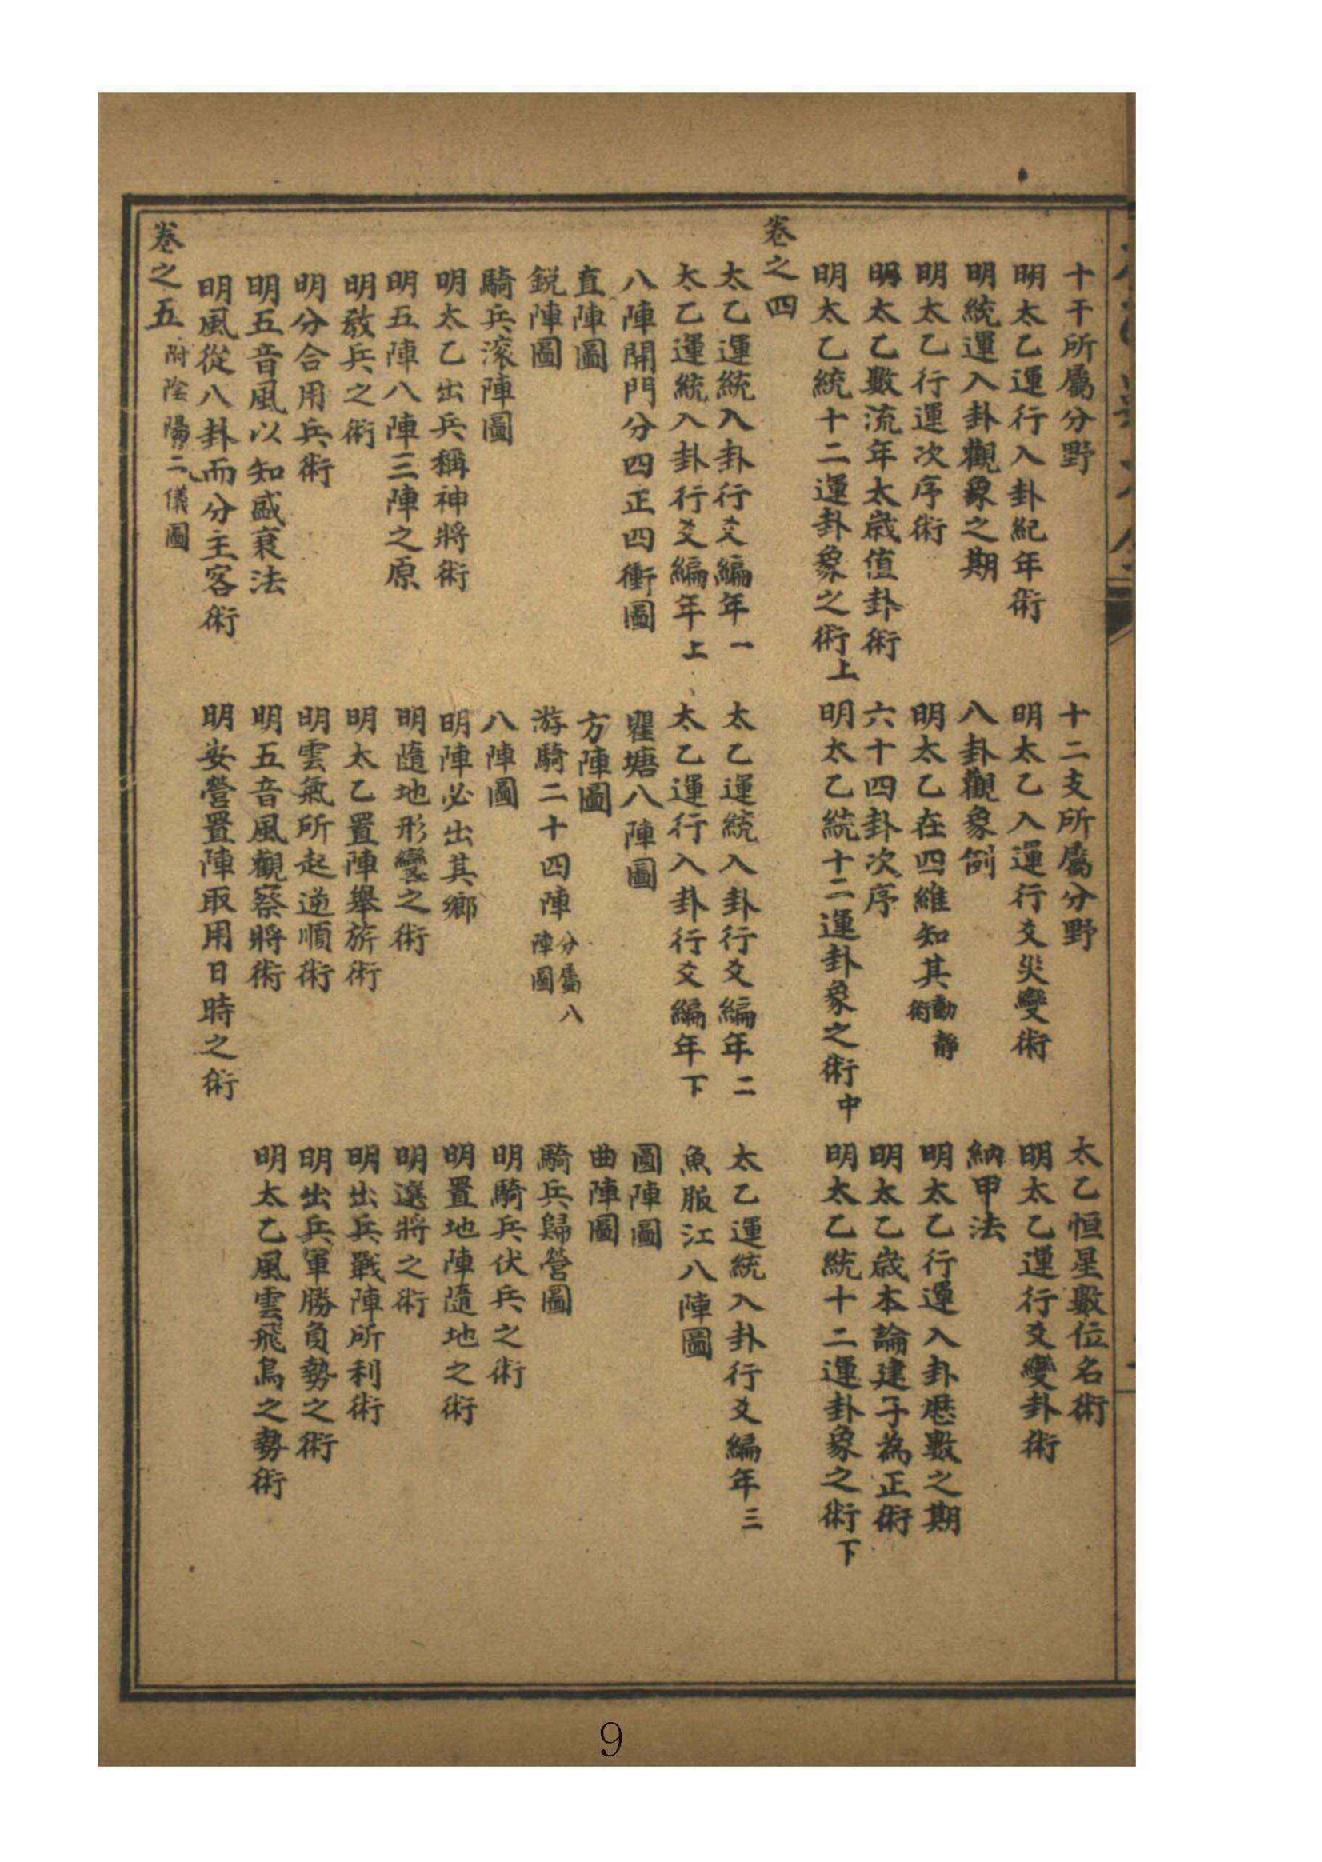 十干所屬分野　十二支所屬分野　太乙恒星數位名術
明太乙運行入卦紀年術　明太乙入運行爻災變術　明太乙運行爻變卦術
明統運入卦觀象之期　八卦觀象例　納甲法
明太乙行運次序術　明太乙在四維知其動靜術　明太乙行運入卦歷數之期
明太乙數流年太歲值卦術　六十四卦次序　明太乙歲本論建子為正術
明太乙統十二運卦象之術上　明太乙統十二運卦象之術中　明太乙統十二運卦象之術下
卷之四
太乙運統入卦行爻編年一　太乙運統入卦行爻編年二　太乙運統入卦行爻編年三
太乙運統入卦行爻編年上　太乙運行入卦行爻編年下　魚腹江八陣圖
八陣開門分四正四衝圖　瞿塘八陣圖　圓陣圖
直陣圖　方陣圖　曲陣圖
銳陣圖　游騎二十四陣分屬八陣圖　騎兵歸營圖
騎兵滚陣圖　八陣圖　明騎兵伏兵之術
明太乙出兵稱神將術　明陣必出其鄉　明置地陣隨地之術
明五陣八陣三陣之原　明隨地形變之術　明選將之術
明教兵之術　明太乙置陣舉旂術　明出兵戰陣所利術
明分合用兵術　明雲氣所起逆順術　明出兵軍勝負勢之術
明五音風以知盛衰法　明五音風觀察將術　明太乙風雲飛鳥之勢術
明風從八卦而分主客術　明安營置陣取用日時之術
卷之五附陰陽二儀圖
9